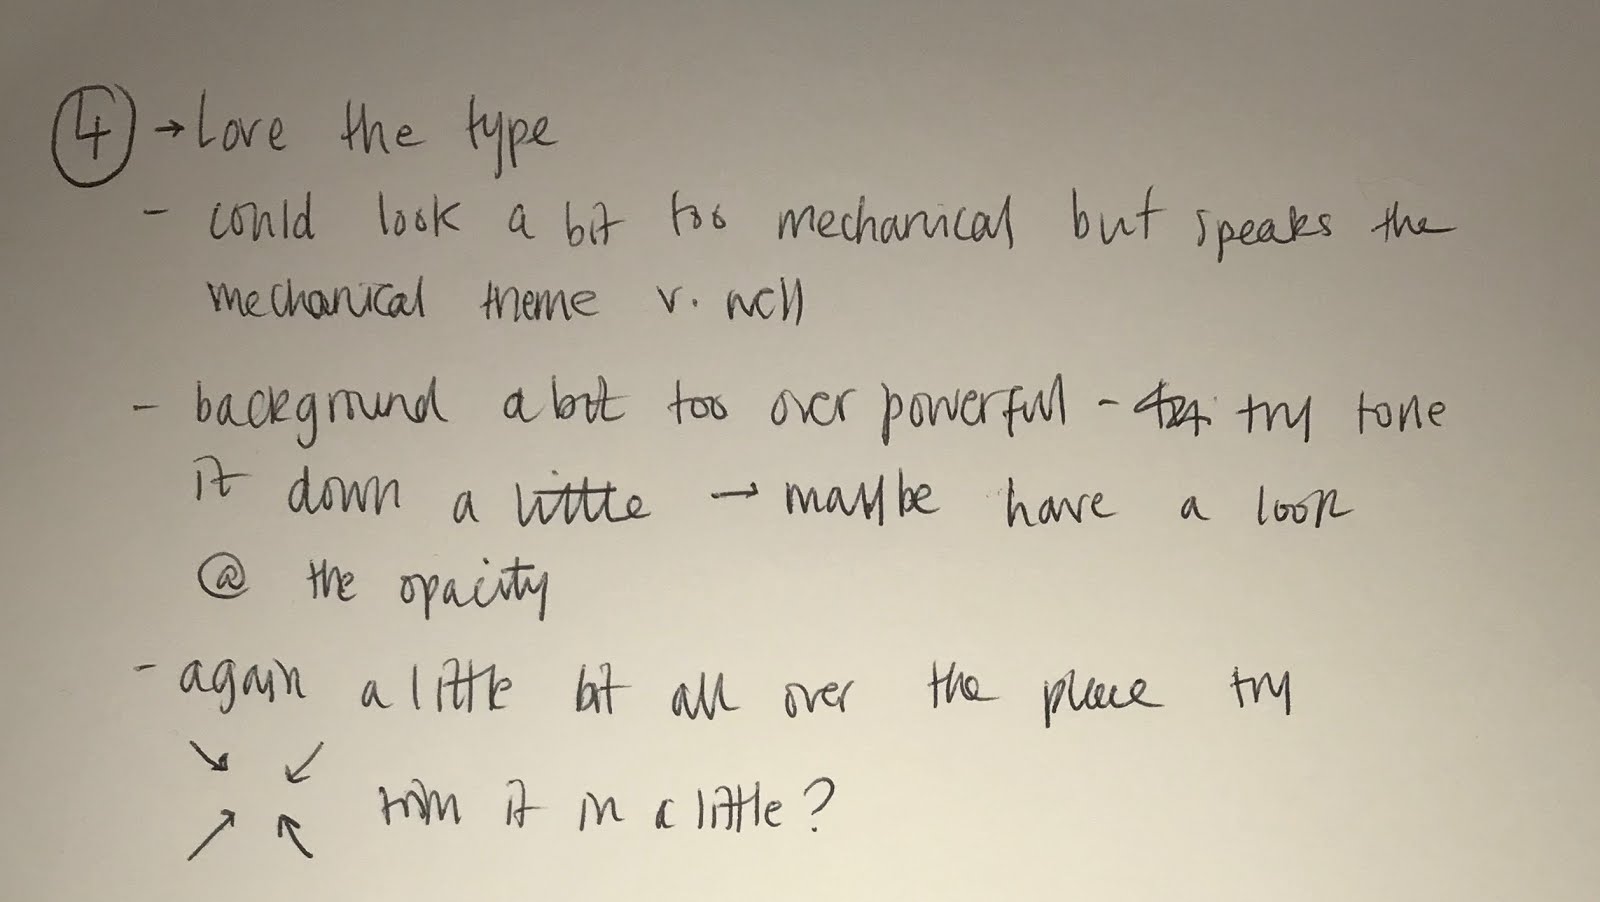 ④ → Love the type
- could look a bit too mechanical but speaks the
mechanical theme v. well
- background a bit too over powerful - try tone
it down a little → maybe have a look
@ the opacity
- again a little bit all over the place try
trim it in a little?